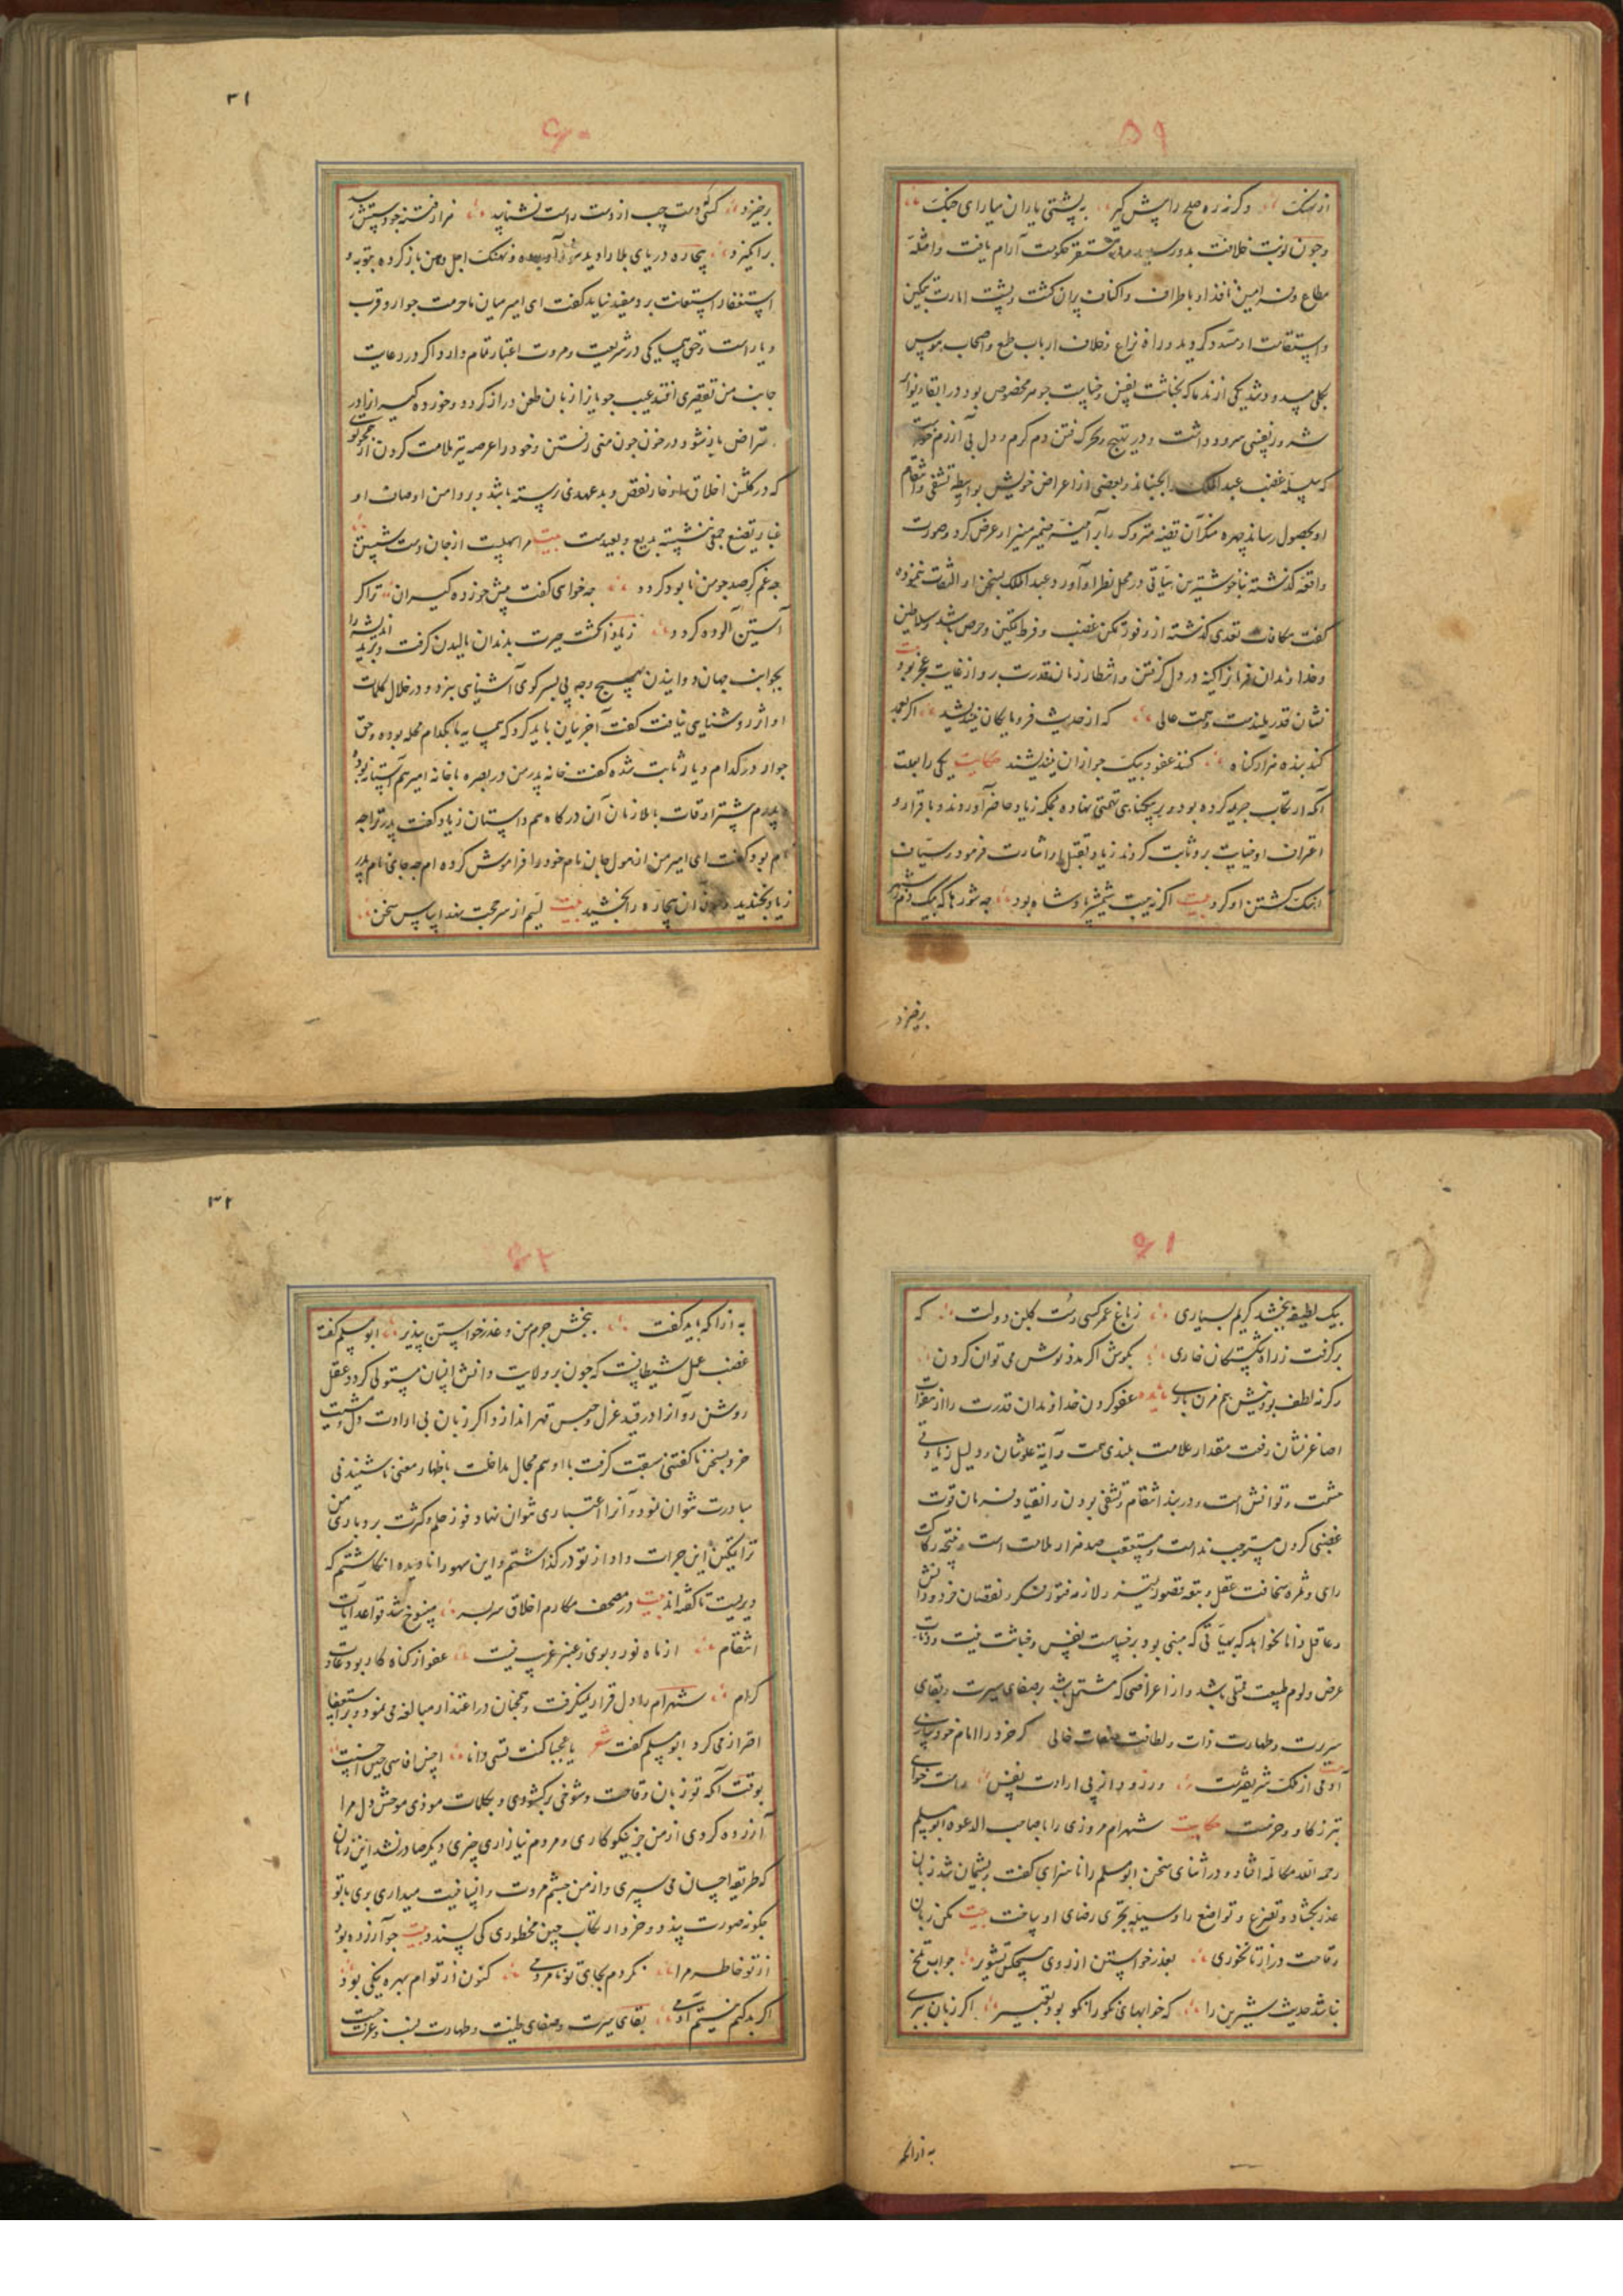 ۵۹
وگرنه ره صلح را پیش گیر به پشتی یاران میارای جنگ
و چون نوبت خلافت بدو رسید و در مستقر حکومت آرام یافت و امثله
مطاع و فرامین نافذ او باطراف و اکناف پران کشت و پشت امارت بتمکین
و استقامت او مسدود کردید و راه نزاع و خلاف ارباب طمع و اصحاب هوس
بکلی مسدود شد یکی از ندما که بخباثت نفس و خیانت جوهر مخصوص بود و در ایقاد نوائر
شرور نفسی سرود داشت و در تهییج و تحرک فتن دم گرم و دل بی آزرم
که سلسله غضب عبدالملک را بجنباند و بعضی از اعراض خویش بواسطه تشفی و انتقام
او بحصول رساند چهره منکر آن قضیه متروکه را بر آینه ضمیر منیر او عرض کرد و صورت
واقعه گذشته بناخوشترین هیأتی در محل نظر او آورد و عبدالملک بسخن او التفات ننموده
گفت مکافات تعدی گذشته از وفور تمکن غضب و فرط تمکین و حرص باشد و سلاطین
و خداوندان فرمان را کینه در دل گرفتن و انتظار زمان قدرت بردن از غایت عجز بود
نشان قدر بلندست و همت عالی که از حدیث فرومایگان نیندیشد اگر بعمد
کند بنده هزار گناه کنند عفو و بیک جو از آن نیندیشند حکایت یکی را بعلت
آنکه ارتکاب جریمه کرده بود و بر بیگناهی تهمتی نهاده بمحکمه زیاد حاضر آوردند و باقرار و
اعتراف او خیانت بروثابت کردند زیاد بقتل او اشارت فرمود و سیاف
آهنگ کشتن او کرد بیت اگر نه هیبت شمشیر پادشاه بود چه شورها که بیک دم ز شهر
برخیزد
۳۱
۶۰
برخیزد کسی دست چپ از دست راست نشناسد هزار فتنه چو دستش رسد
برانگیزد بیچاره دریای بلا را دید در و نهنگ اجل دهن باز کرده بتوبه و
استغفار استعانت برد مفید نیامد گفت ای امیر میان ما حرمت جوار و قرب
دیار است و حق همسایگی در شریعت و مروت اعتبار تمام دارد اگر در رعایت
جانب من تقصیری افتد عیب جویان را زبان طعن دراز گردد و خورده گیران را در
اعتراض باز شود و در خون چون منی رفتن و خود را عرصه تیر ملامت کردن از همچو تویی
که در گلشن اخلاق او خار نقض و بدعهدی نرسته باشد و بر دامن اوصاف او
غبار تصنع جمعی ننشسته بدیع و بعیدست بیت مرا سهلست از جان دست شستن
چه غم گر صد چو من نابود گردد چه خواهی گفت پیش خورده گیران ترا گر
آستین آلوده گردد زیاد انگشت حیرت بدندان مالیدن گرفت و برید اندیشه را
بجوانب جهان دوانیدن بهیچ وجه پی بسر کوی آشنایی نبرد و در خلال کلمات
او اثر روشنایی نیافت گفت آخر بیان باید کرد که همسایه ما بکدام محله بوده و حق
جوار در کدام دیار ثابت شده گفت خانه پدر من در بصره با خانه امیر هم آستانه بود
و پدرم بیشتر اوقات با ملازمان آن درگاه هم داستان زیاد گفت پدر ترا چه
نام بود گفت ای امیر من از هول جان نام خود را فراموش کرده ام چه جای نام پدر
زیاد بخندید و خون آن بیچاره را بخشید بیت لئیم از سر محبت نهد اساس سخن
۶۱
بیک لطیفه ببخشد کریم بسیاری ز باغ عمر کسی رست گلبن دولت که
برگرفت ز راه شکستگان خاری بکوش اگر مدد نوش می توان کردن
وگرنه لطف بود نیش هم مزن باری فایده عفو کردن خداوندان قدرت را از هفوات
اصاغر نشان رفعت مقدار و علامت بلندی همت و آیه علو شان و دلیل زیادتی
حشمت و توانش است و در بند انتقام و تشفی بودن و انقیاد فرمان قوت
غضبی کردن مستوجب ندامت و مستعقب صد هزار ملامت است و نتیجه رکاکت
رای و ثمره سخافت عقل و تبعه قصور تمییز و لازمه فتور تفکر و نقصان خرد و دانش
و عاقل دانا نخواهد که بهیأتی که مبنی بود بر خساست نفس و خباثت نیت و دنائت
عرض و لوم طبیعت مبتلی باشد و از اعراضی که مشتمل باشد بر صفای سیرت و نقای
سریرت و طهارت ذات و لطافت صفات خالی گر خرد را امام خود سازی
آدمی از ملک شریفترست ور رود از پی ارادت نفس
بتر ز گاو و خرست حکایت شهرام مروزی را با صاحب الدعوه ابومسلم
رحمه الله مکالمه افتاد و در اثنای سخن ابومسلم را ناسزایی گفت و پشیمان شد زبان
عذر بگشاد و تضرع و تواضع را وسیله تحری رضای او یافت بیت مکن زبان
وقاحت دراز تا نخوری بعذر خواستن از روی هیچکس تشویر جواب تلخ
نباشد حدیث شیرین را که خوابهای نکو را نکو بود تعبیر اگر زبان ببری
به از آنکه
۳۲
۶۲
به از آنکه باید گفت ببخش جرم من و عذر خواستن بپذیر ابومسلم گفت
غضب عمل شیطانست که چون بر ولایت دانش انسان مستولی گردد عقل
روشن روان را در قید عزل و حبس قهر اندازد اگر زبان بی ارادت دل و مشیت
خرد بسخن ناگفتنی سبقت گرفت با او هم مجال مداخلت باظهار معنی ناشنیدنی
مبادرت نتوان نمود و آن را اعتباری نتوان نهاد وفور حلم و کثرت بردباری من
ترا بتمکین این جرات داد از تو درگذاشتم و این سهو را نادیده انگاشتم که
دیریست تا گفته اند بیت در مصحف مکارم اخلاق سربسر منسوخ شد قواعد آیات
انتقام از ماه نور و بوی ز عنبر غریب نیست عفو از گناه کار بود عادت
کرام شهرام را دل قرار نمیگرفت و همچنان در اعتذار مبالغه می نمود و بر استعفا
اقرار می کرد ابومسلم گفت شعر یا عجبا کنت تسی دانا احسن افاسی حین احسنت
بوقت آنکه تو زبان وقاحت و شوخی برگشودی و بکلمات موذی موحش دل مرا
آزرده کردی از من جز نیکوکاری و مردم نیازاری چیزی دیگر صادر نشد این زمان
که طریقه احسان می سپری و از من چشم مروت و انسانیت میداری بدی با تو
چگونه صورت بندد و خرد ارتکاب چنین محظوری کی پسندد بیت چو آزرده بود
از تو خاطر مرا نکردم بجای تو نامردمی کنون از توام بهره نیکی بود
اگر بد کنم نیستم آدمی نقای سیرت و صفای طینت و طهارت نسب و عزت